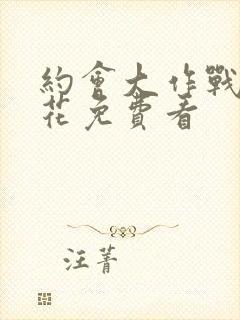 約會大作戰
花免費看
汪菁